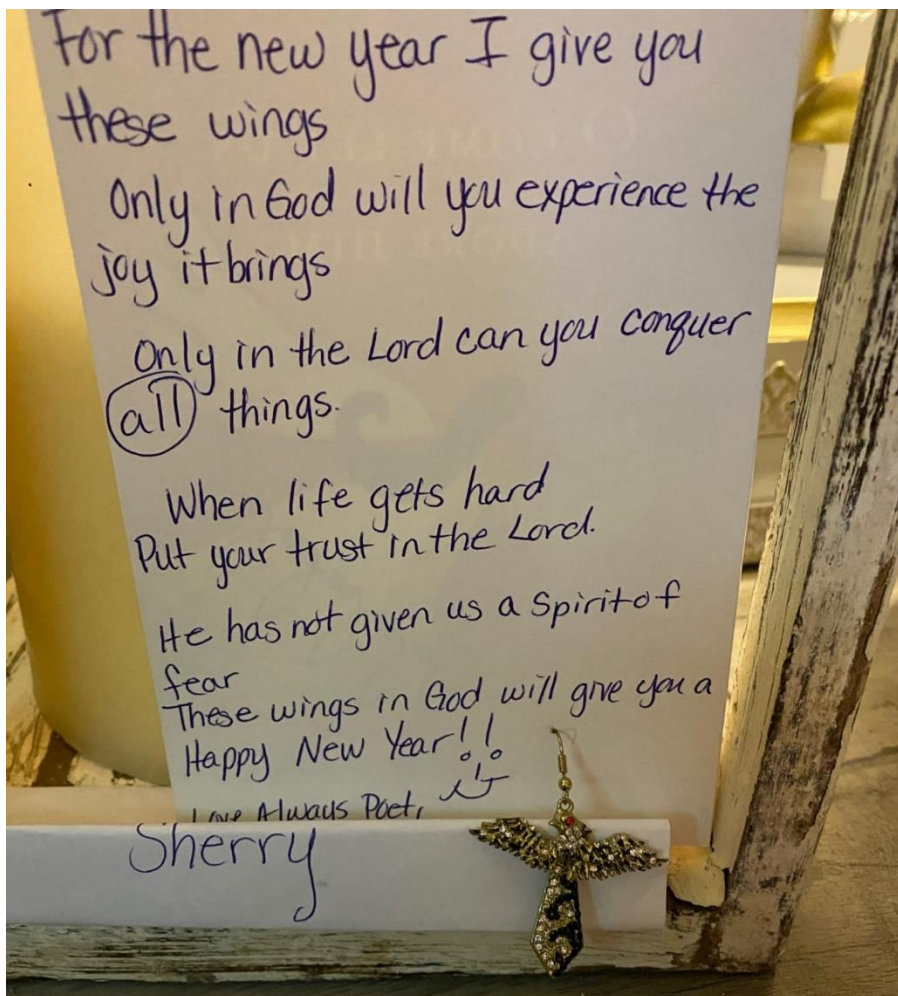 For the new year I give you
these wings
Only in God will you experience the
joy it brings
Only in the Lord can you conquer
all things.
When life gets hard
Put your trust in the Lord.
He has not given us a Spirit of
fear
These wings in God will give you a
Happy New Year!!
Love Always Poet,
Sherry